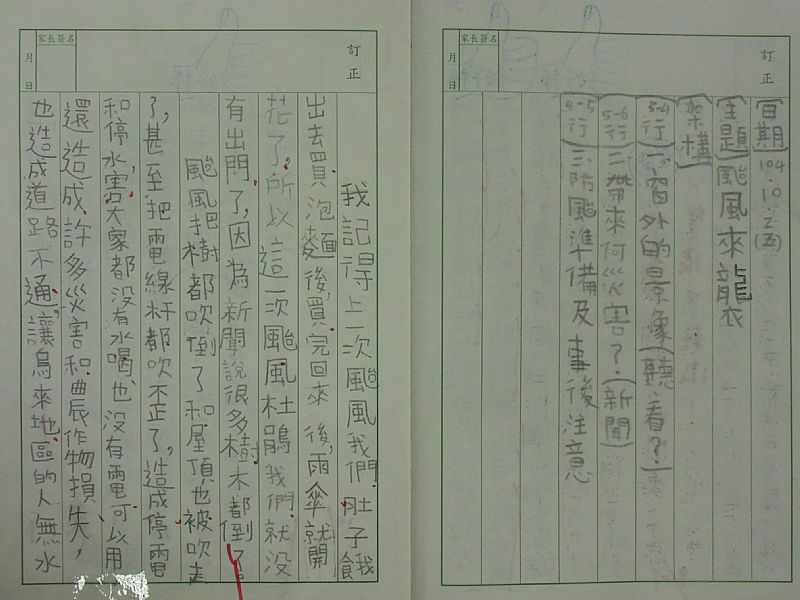 家長簽名
月 日
訂正
(日期)104.10.2(五)
(主題)颱風來襲
(架構)
(3-4行)一、窗外的景象(聽、看?)
(5-6行)二、帶來何災害?(新聞)
(4-5行)三、防颱準備及事後注意
家長簽名
月 日
訂正
我記得上一次颱風我們肚子餓
出去買泡麵後,買完回來後,雨傘就開
花了。所以這一次颱風杜鵑我們就沒
有出門了,因為新聞說很多樹木都倒了。
颱風把樹都吹倒了和屋頂也被吹走
了,甚至把電線杆都吹不正了,造成停電
和停水,害大家都沒有水喝也沒有電可以用
還造成許多災害和農作物損失,
也造成道路不通,讓烏來地區的人無水